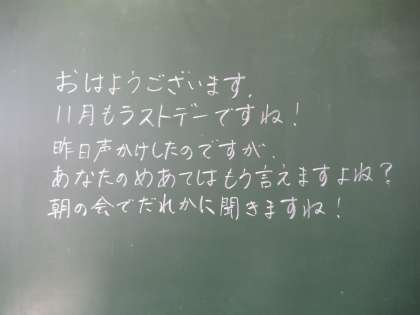 おはようございます.
11月もラストデーですね！
昨日声かけしたのですが.
あなたのめあてはもう言えますよね？
朝の会でだれかに聞きますね！